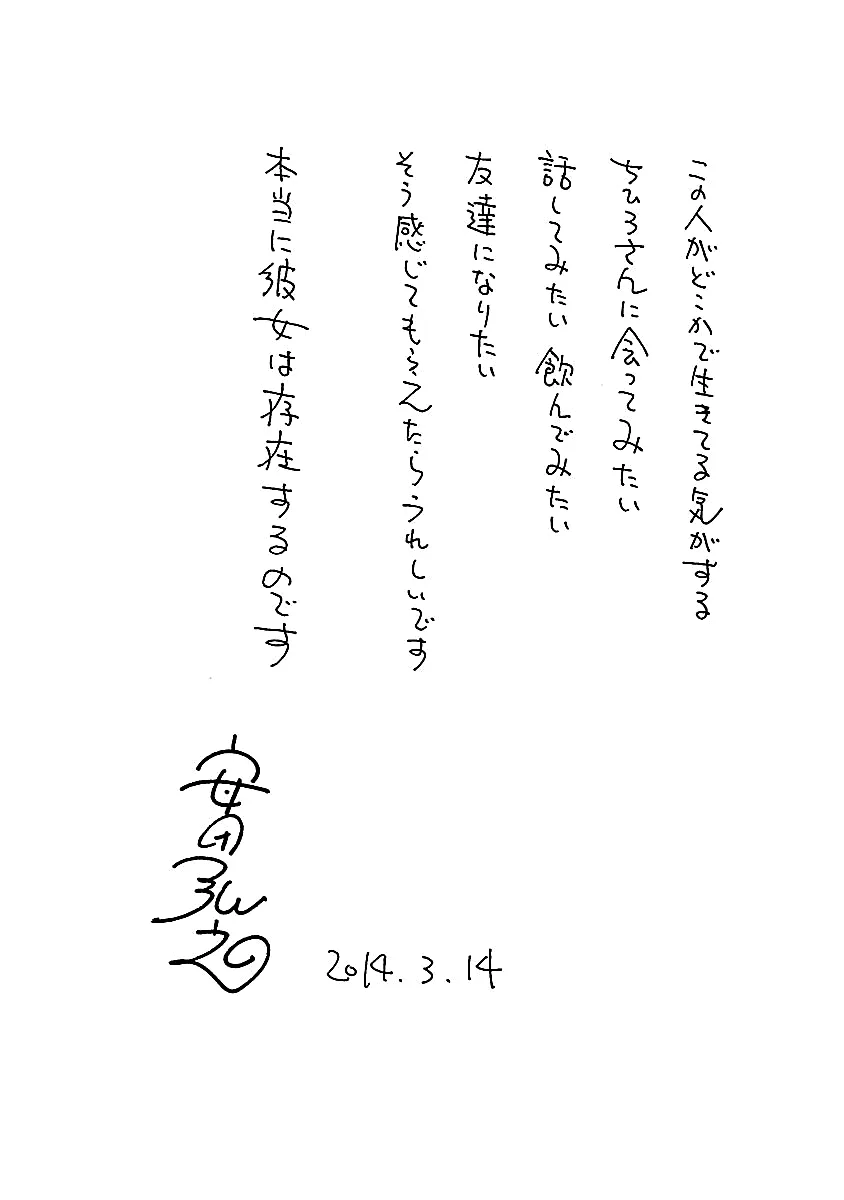 この人がどこかで生きてる気がする
ちひろさんに会ってみたい
話してみたい 飲んでみたい
友達になりたい
そう感じてもらえたらうれしいです
本当に彼女は存在するのです
安田弘之
2014.3.14